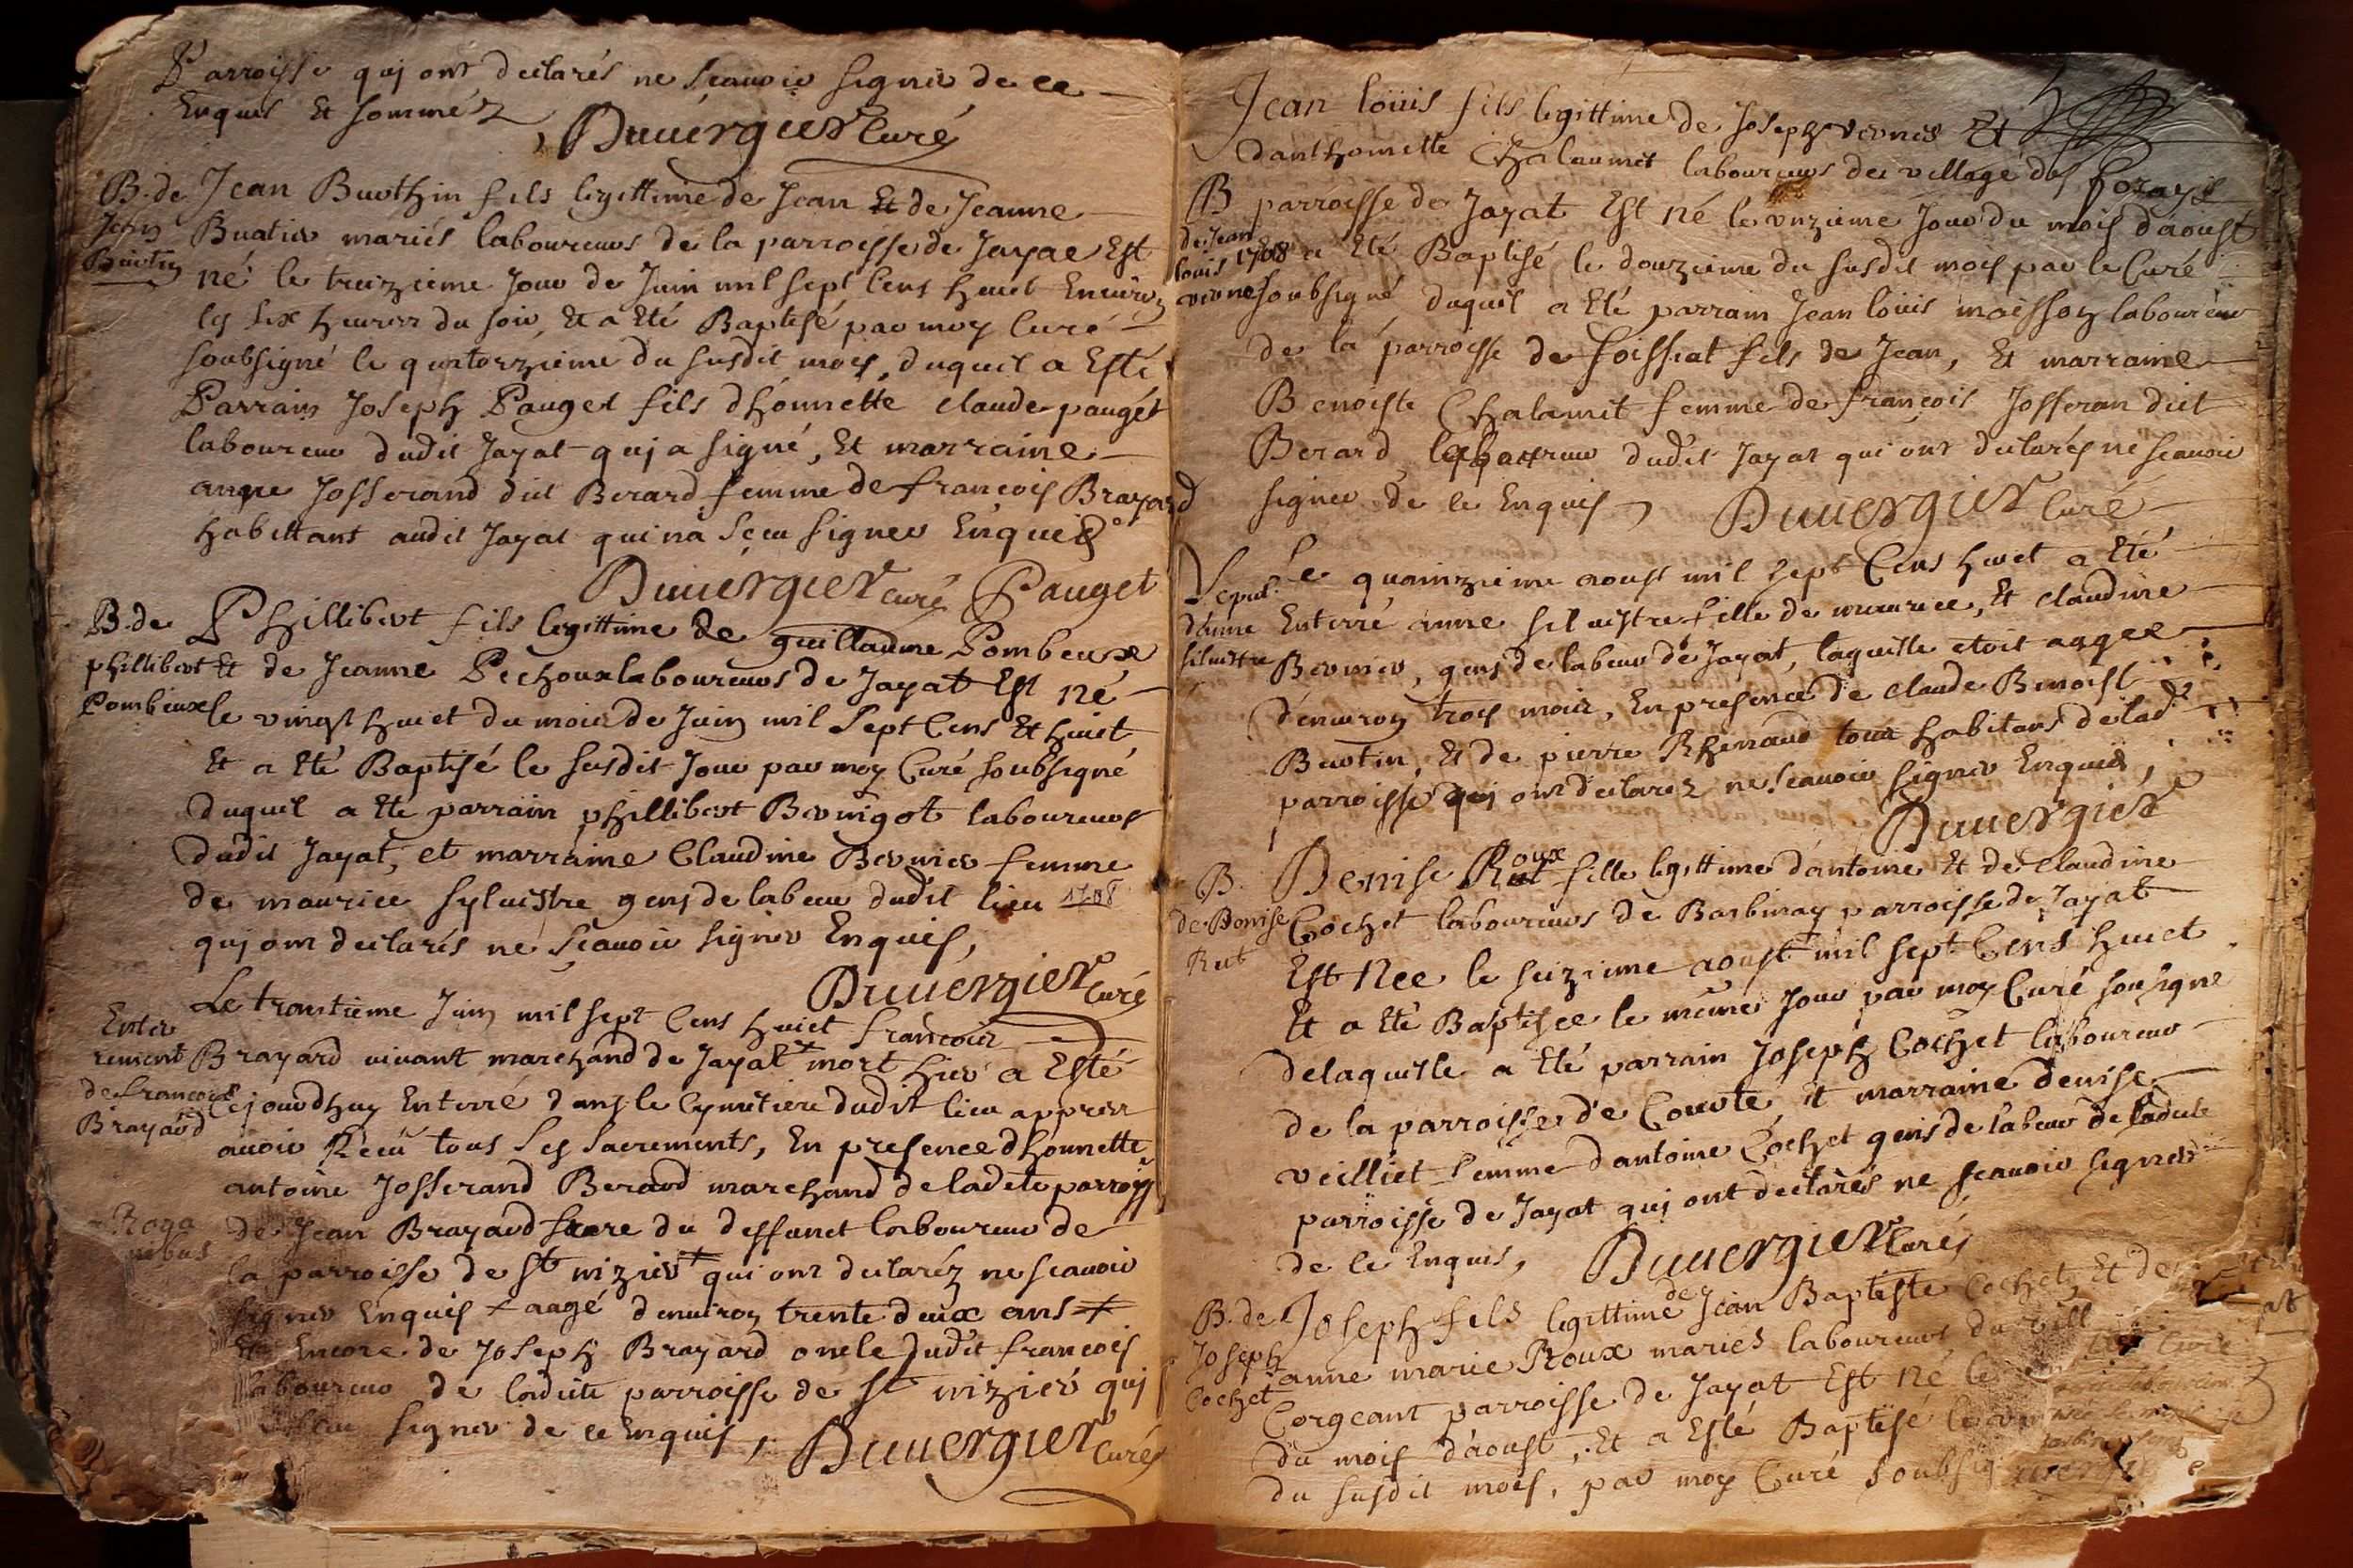 Parroisse quj ont declarés ne scauoir signer de ce
Enquis Et sommez
Duuergier Curé
B. de
Jean
Buvthin
Jean Buvthin fils legittime de Jean Et de Jeanne
Buatier mariés laboureurs de la parroisse de Jayac Est
né le treizieme Jour de Juin mil sept Cens huict Enuiron
les six heures du soir, Et a Eté Baptisé par moy Curé
soubsigné le quatorzieme du susdit mois, duquel a Esté
Parrain Joseph Pauget fils d'honnette claude pauget
laboureur dudit Jayat quj a signé, Et marraine
anne Josserand dit Berard femme de françois Brayard
habittant audit Jayat qui na sceu signer Enquis
Duuergier curé Pauget
B. de
phillibert
Pombeuxe
Phillibert fils legittime de guillaume Pombeuxe
Et de Jeanne Pechoux laboureurs de Jayat Est né
le vingt huict du mois de Juin mil Sept Cens Et huict
Et a Eté Baptisé le susdit Jour par moy Curé soubsigné
duquel a Eté parrain phillibert Bevnigot laboureur
dudit Jayat, et marraine Claudine Bernier femme
de maurice syluistre gens de labeur dudit lieu 1708
quj ont declarés ne scauoir signer Enquis,
Duuergier Curé
Enter
rement
de francois
Brayard
Le trantieme Juin mil sept Cens huict francois
Brayard viuant marchand de Jayat + mort hier a Esté
Cejourdhuy Enterré dans le Cymetiere dudit lieu appres
auoir Receu tous Ses Sacrements, En presence d'honnette
antoine Josserand Berard marchand de ladete parroisse
de Jean Brayard frere du deffunct laboureur de
la parroisse de st nizier + qui ont declaréz ne scauoir
signer Enquis + aagé d'enuiron trente deux ans +
Et Encore de Joseph Brayard oncle dudit francois
laboureur de ladite parroisse de st nizier quj
sceu signer de ce Enquis,
Duuergier Curé
Roga
nobus
Jean loüis fils legittime de Joseph vernes Et
danthoinette Chalaumet laboureurs du village des
B
de Jean
louis
verne
parroisse de Jayat Est né le vnzieme Jour du mois d'aoust
1708 a Eté Baptisé le douzieme du susdit mois par le Curé
soubsigné, duquel a Eté parrain Jean loüis moisson laboureur
de la parroisse de foissiat fils de Jean, Et marraine
Benoiste Chalamet femme de françois Josseran dict
Berard laboureur dudit Jayat qui ont declarés ne scauoir
signer de ce Enquis, Duuergier Curé
Sepul.
d'anne
siluistre
Le quainzieme aoust mil sept Cens huict a Eté
Enterré anne siluistre fille de maurice, Et claudine
Bernier, gens de labeur de Jayat, laquelle etoit aagee
d'enuiron trois mois, En presence de claude Benoist
Buvtin, Et de pierre Rhenaud tous habitans de lad
parroisse quj ont declarez ne scauoir signer Enquis,
Duuergier
B.
de Denise
Rut
Denise Roux fille legittime d'antoine Et de Claudine
Cochet laboureurs de Barbinay parroisse de Jayat
Est Née le seizieme aoust mil sept Cens huict
Et a Eté Baptisee le méme Jour par moy Curé sousigne
delaquelle a Eté parrain Joseph Cochet laboureur
de la parroisse de Courte, et marraine denise
veilliet femme d'antoine Cochet gens de labeur de ladite
parroisse de Jayat quj ont declarés ne scauoir signer
de ce Enquis, Duuergier Curé
B. de
Joseph
Cochet
Joseph fils legittime de Jean Baptiste Cochet, Et de
anne marie Roux mariés laboureurs du vill
Corgeant parroisse de Jayat Est Né le
du mois d'aoust, Et a Esté Baptisé le
du susdit mois, par moy Curé soubsig